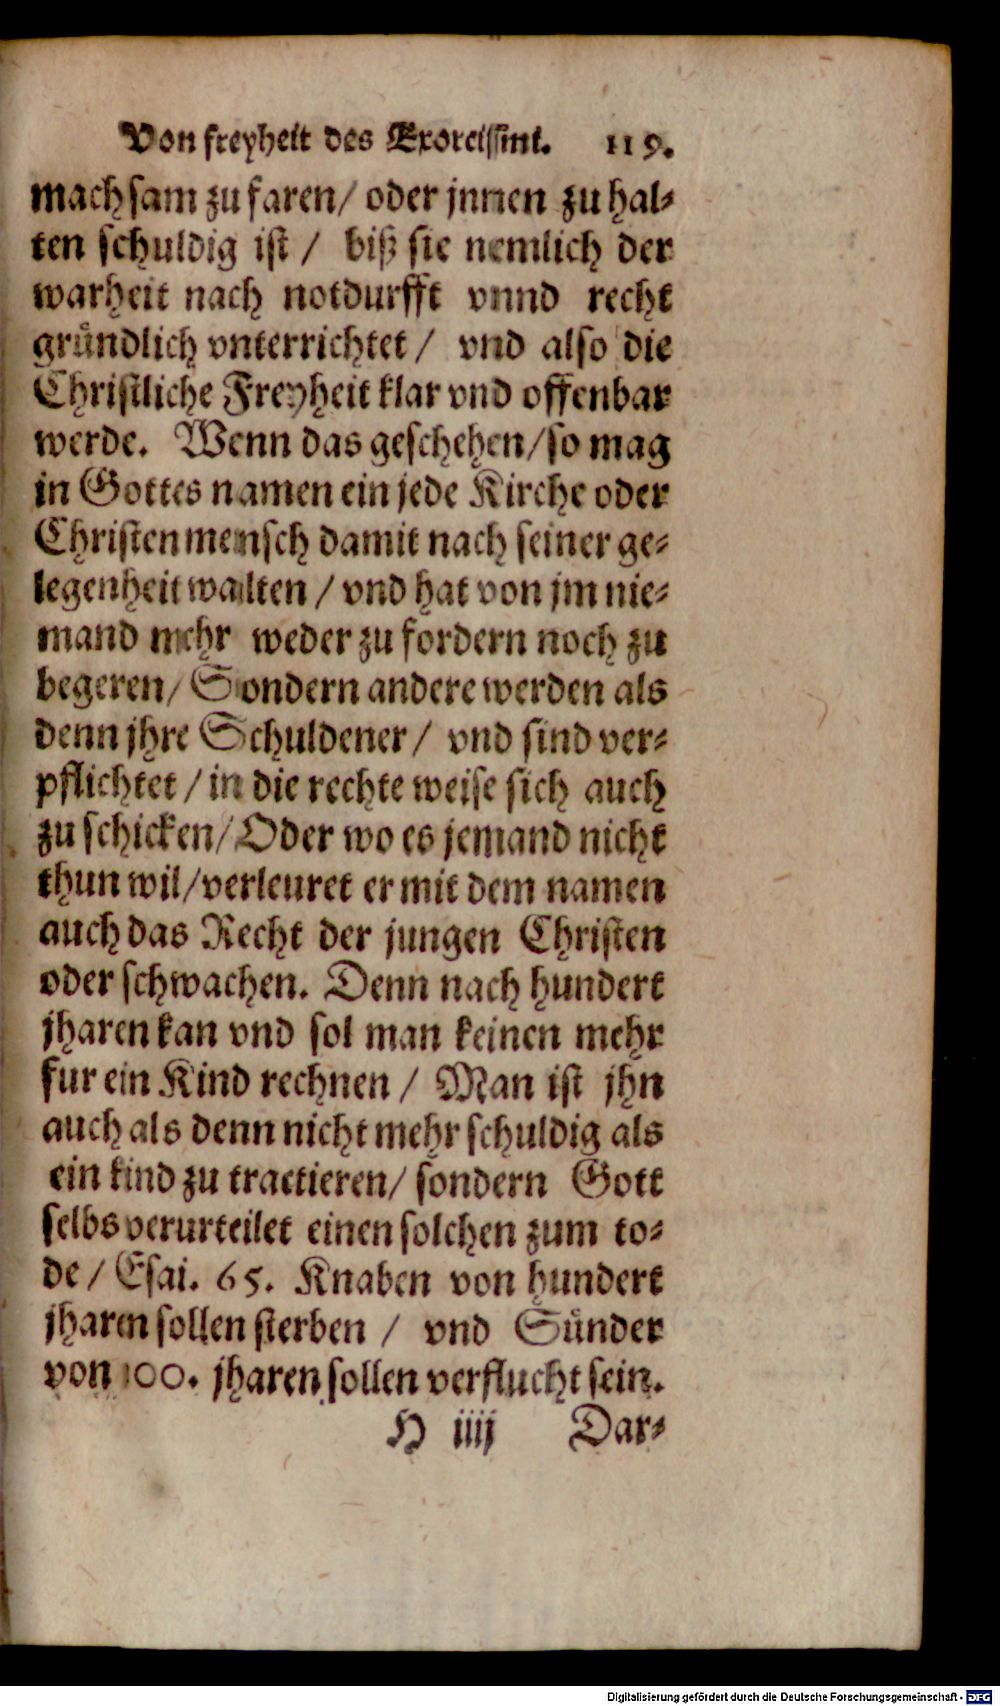 Von freyheit des Exorcissmi. 119.
machsam zu faren/ oder jnnen zu hal-
ten schuldig ist / biß sie nemlich der
warheit nach notdurfft vnnd recht
gründlich vnterrichtet / vnd also die
Christliche Freyheit klar vnd offenbar
werde. Wenn das geschehen/so mag
in Gottes namen ein jede Kirche oder
Christenmensch damit nach seiner ge-
legenheit walten / vnd hat von jm nie-
mand mehr weder zu fordern noch zu
begeren/ Sondern andere werden als
denn jhre Schuldener / vnd sind ver-
pflichtet / in die rechte weise sich auch
zu schicken/ Oder wo es jemand nicht
thun wil/verleuret er mit dem namen
auch das Recht der jungen Christen
oder schwachen. Denn nach hundert
jharen kan vnd sol man keinen mehr
fur ein Kind rechnen / Man ist jhn
auch als denn nicht mehr schuldig als
ein kind zu tractieren/ sondern Gott
selbs verurteilet einen solchen zum to-
de / Esai. 65. Knaben von hundert
jharen sollen sterben / vnd Sünder
von 100. jharen sollen verflucht sein.
H iiij Dar-
Digitalisierung gefördert durch die Deutsche Forschungsgemeinschaft - DFG